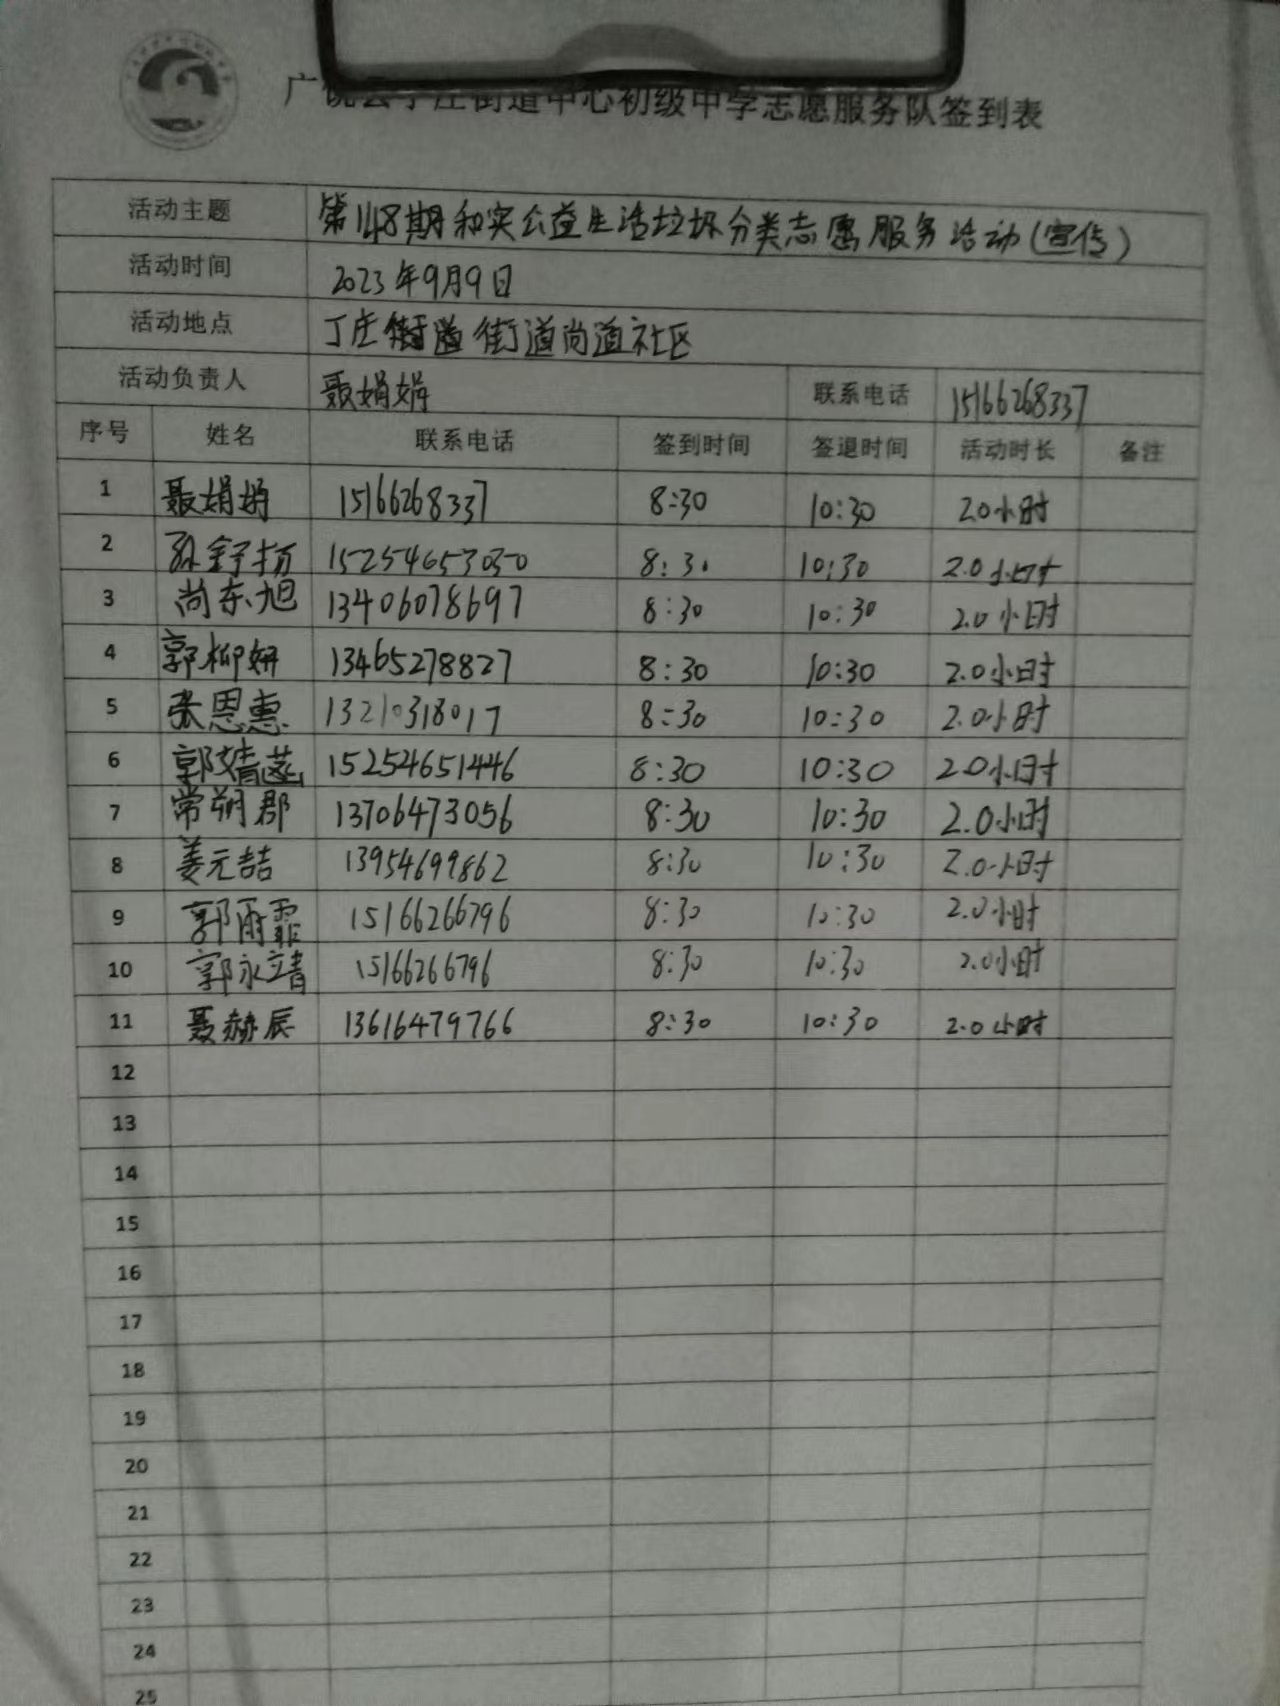 广饶县丁庄街道中心初级中学志愿服务队签到表
活动主题 第148期和实公益生活垃圾分类志愿服务活动(宣传)
活动时间 2023年9月9日
活动地点 丁庄街道街道尚道社区
活动负责人 聂娟娟 联系电话 15166268337
序号 姓名 联系电话 签到时间 签退时间 活动时长 备注
1 聂娟娟 15166268337 8:30 10:30 2.0小时
2 孙舒扬 15254653030 8:30 10:30 2.0小时
3 尚东旭 13406078697 8:30 10:30 2.0小时
4 郭柳妍 13465278827 8:30 10:30 2.0小时
5 张恩惠 13210318017 8:30 10:30 2.0小时
6 郭婧菡 15254651446 8:30 10:30 2.0小时
7 常朔郡 13706473056 8:30 10:30 2.0小时
8 姜元喆 13954699862 8:30 10:30 2.0小时
9 郭雨霏 15166266796 8:30 10:30 2.0小时
10 郭永靖 15166266796 8:30 10:30 2.0小时
11 聂赫辰 13616479766 8:30 10:30 2.0小时
12
13
14
15
16
17
18
19
20
21
22
23
24
25